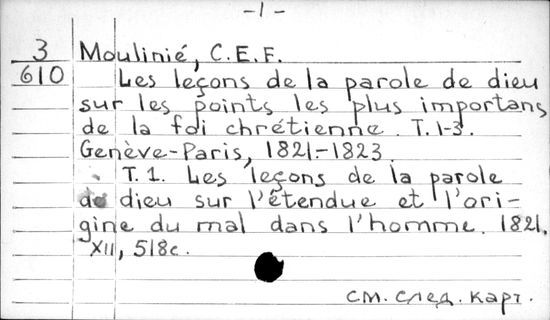 -1-
3 Moulinié, C.E.F.
610 Les leçons de la parole de dieu
sur les points les plus importans
de la foi chrétienne. T.1-3.
Genève-Paris, 1821-1823.
T.1. Les leçons de la parole
de dieu sur l'étendue et l'ori-
gine du mal dans l'homme. 1821.
XII, 518c.
см. след. карт.